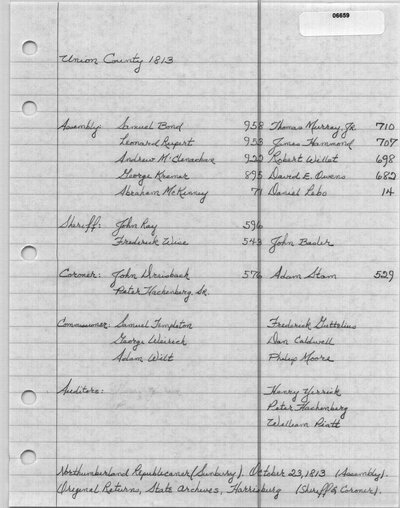 06659
Union County 1813
Assembly: Samuel Bond 958 Thomas Murray Jr. 710
Leonard Rupert 953 James Hammond 707
Andrew McClenachan 922 Robert Willet 698
George Kremer 895 David E. Owens 682
Abraham McKinney 71 Daniel Lebo 14
Sheriff: John Ray 596
Frederick Wise 543 John Bader
Coroner: John Driesback 576 Adam Stam 529
Peter Hackenberg Sr.
Commissioner: Samuel Templeton Frederick Gutelius
George Weirick Dan Caldwell
Adam Wilt Philip Moore
Auditors: Henry Yerrick
Peter Hackenberg
William Piatt
Northumberland Republicaner (Sunbury). October 23, 1813 (Assembly).
Original Returns, State Archives, Harrisburg (Sheriff & Coroner).